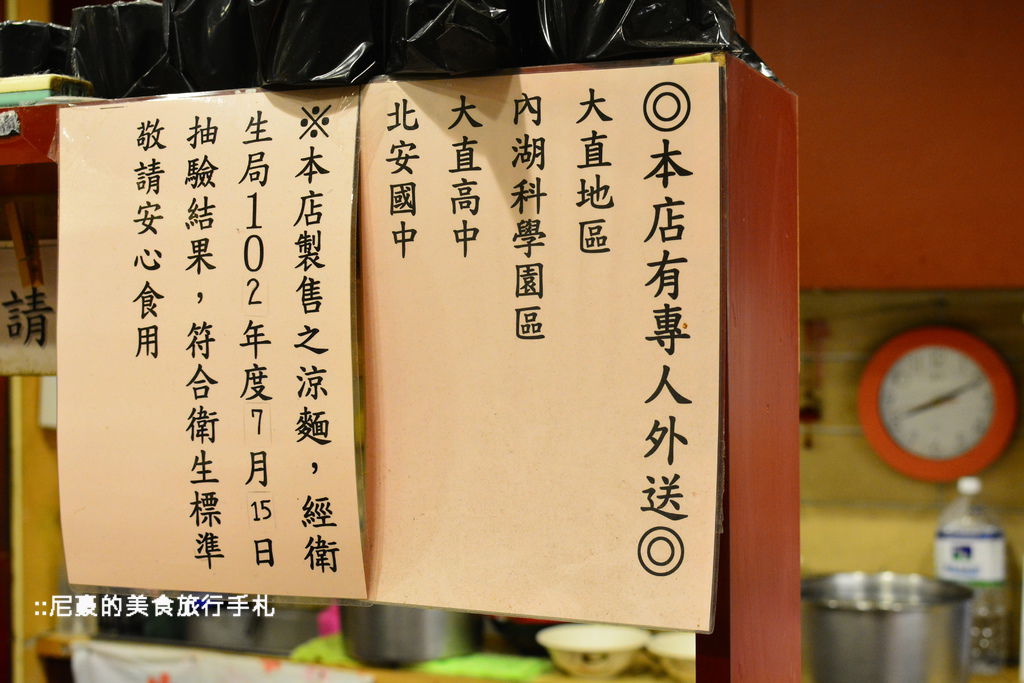 ◎本店有專人外送◎
大直地區
內湖科學園區
大直高中
北安國中
※本店製售之涼麵，經衛
生局102年度7月15日
抽驗結果，符合衛生標準
敬請安心食用
請
::尼豪的美食旅行手札